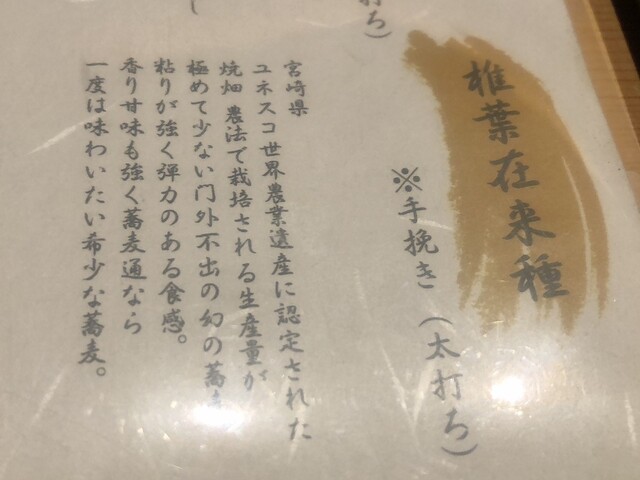 椎葉在来種
※手挽き(太打ち)
宮崎県
ユネスコ世界農業遺産に認定された
焼畑 農法で栽培される生産量が
極めて少ない門外不出の幻の蕎
粘りが強く弾力のある食感。
香り甘味も強く蕎麦通なら
一度は味わいたい希少な蕎麦。
打ち)